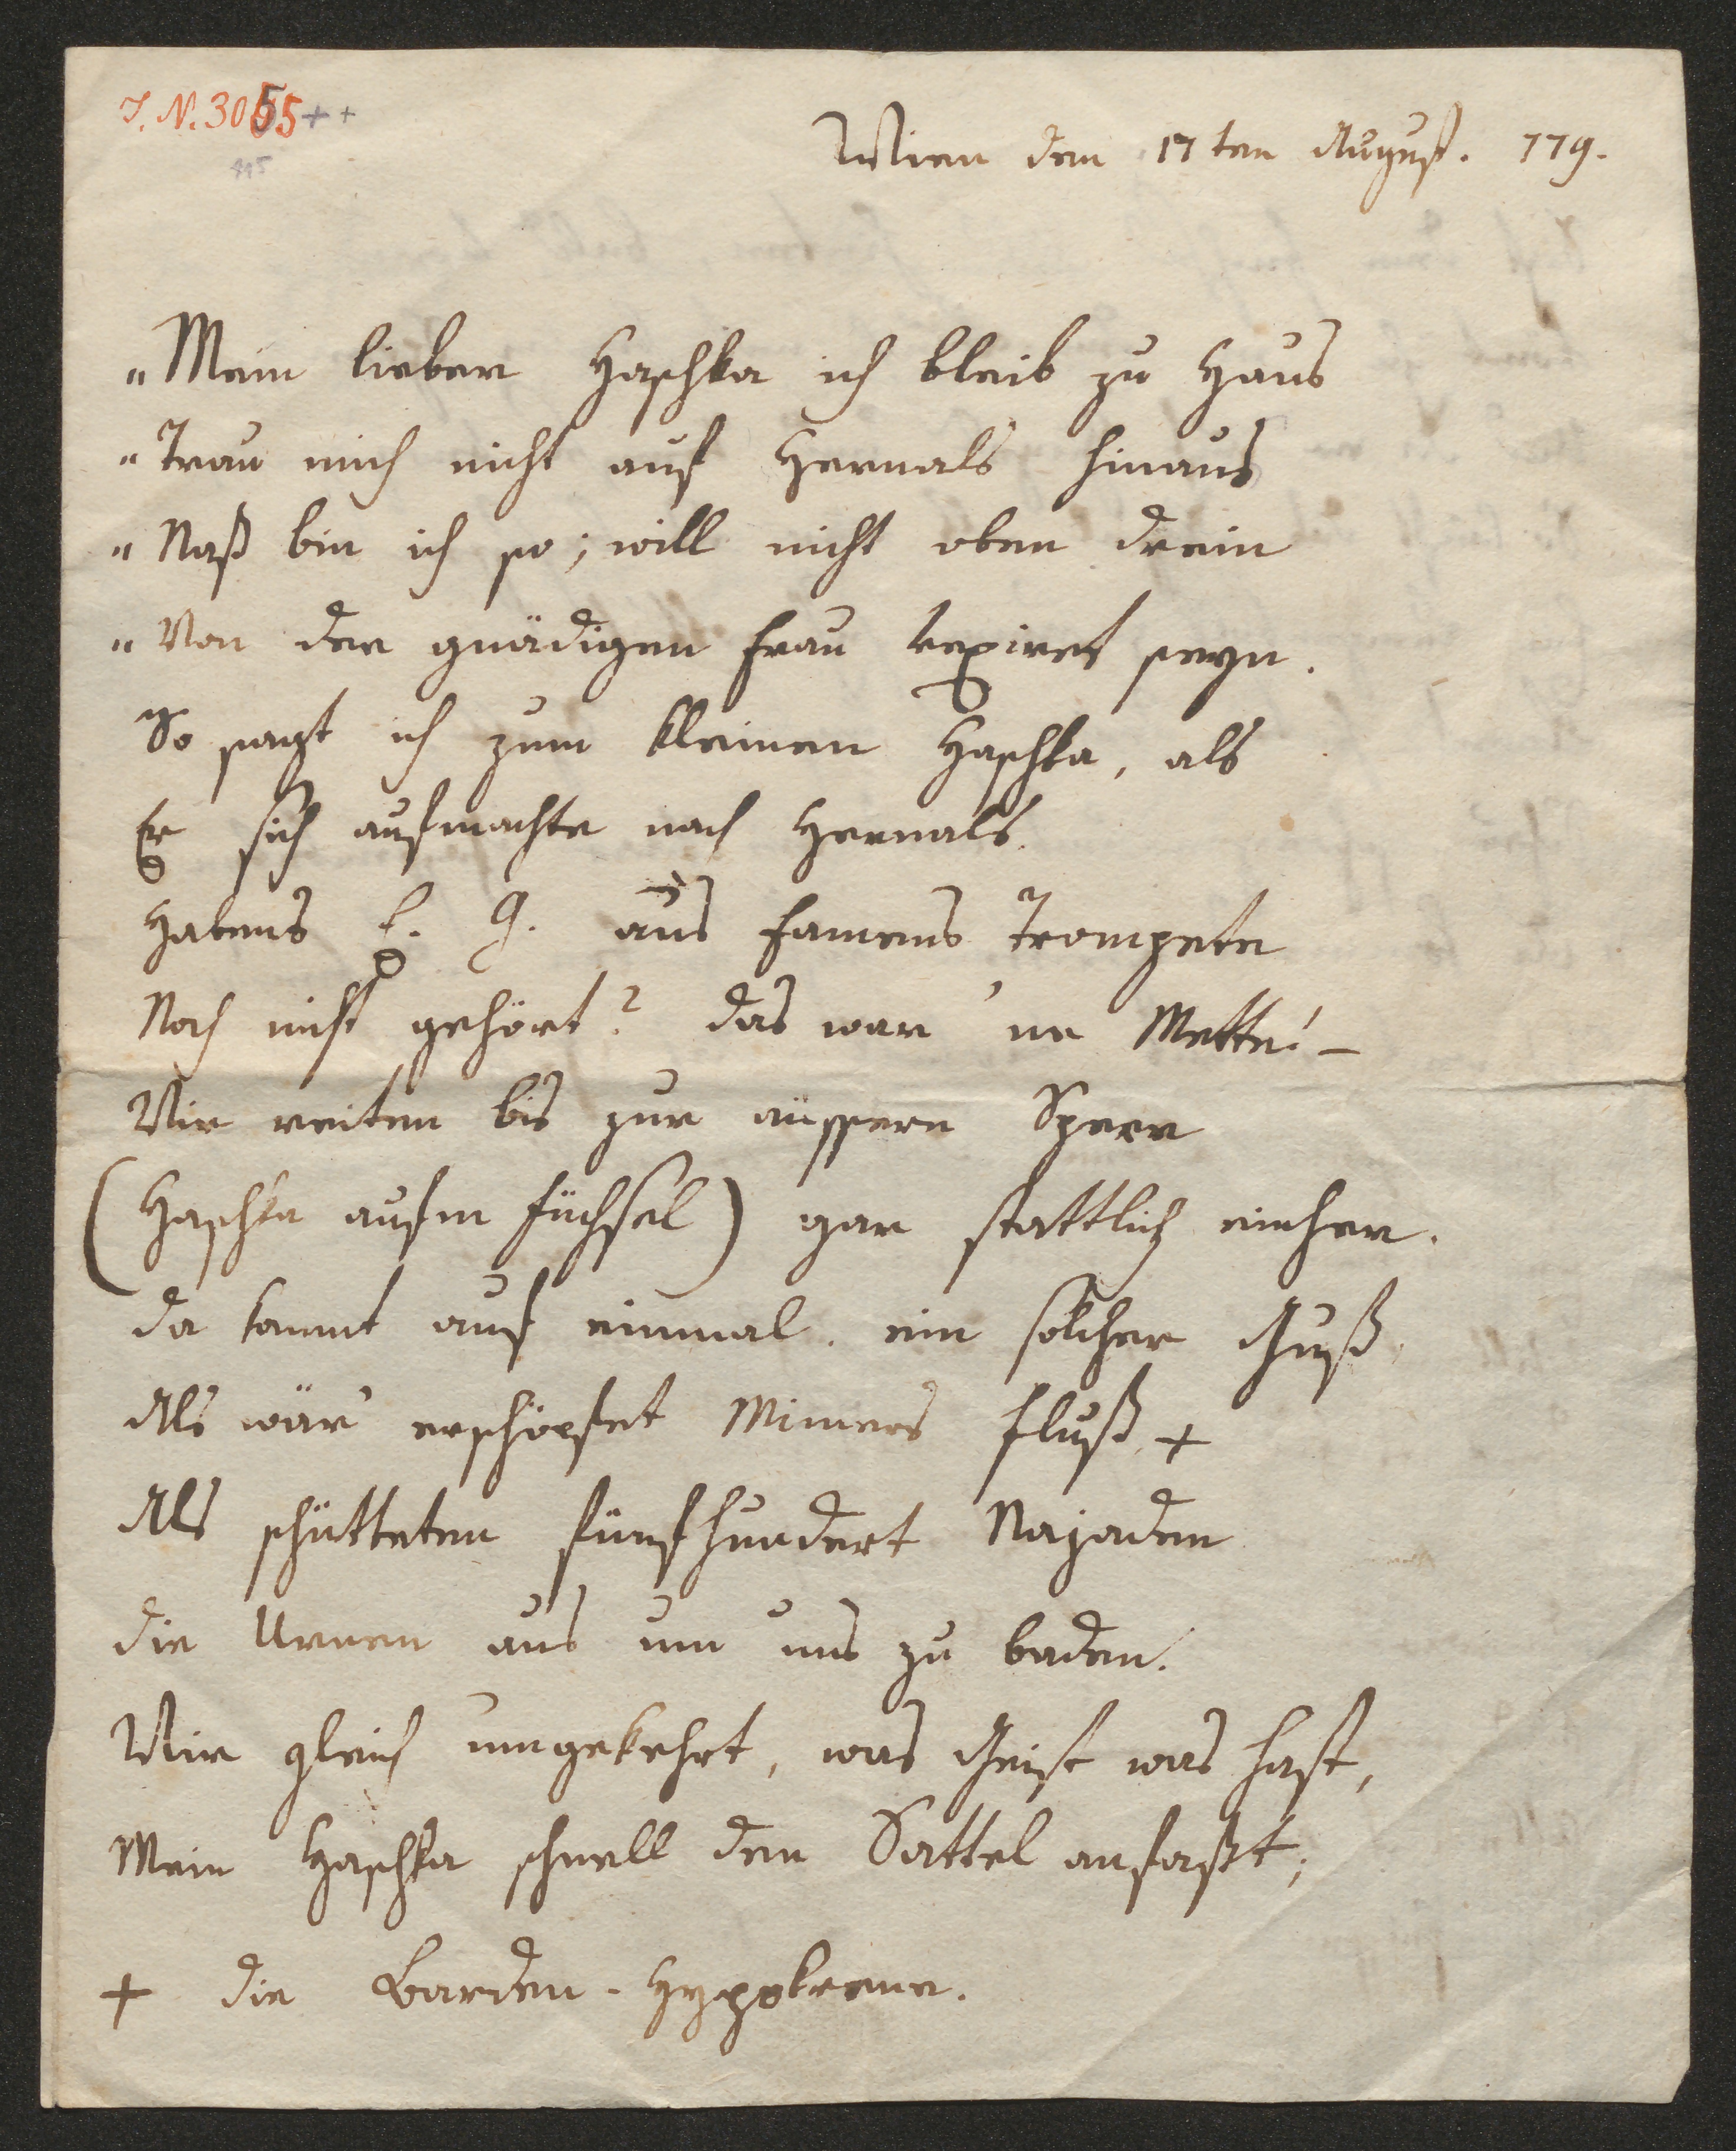 J. N. 3055++
Wien den 17ten August. 779.
"Mein lieber Haschka ich bleib zu Haus
"Trau mich nicht auf Hernals hinaus
"Naß bin ich so; will nicht oben drein
"Von der gnädigen Frau vexiret seyn.
So sagt ich zum kleinen Haschka, als
Er sich aufmachte nach Hernals.
Habens E. G. aus Famens Trompete
Noch nicht gehört? das war 'ne Mette! –
Wir reiten bis zur äussern Sperr
(Haschka aufm Füchsel) gar stattlich einher.
da kommt auf einmal ein solcher Guß
Als wär' erschöpfet Mimers Fluß +
Als schütteten fünfhundert Najaden
die Urnen aus um uns zu baden.
Wir gleich umgekehrt, was Geist was hast,
Mein Haschka schnell den Sattel anfaßt;
+ die Barden-Hyppokrene.